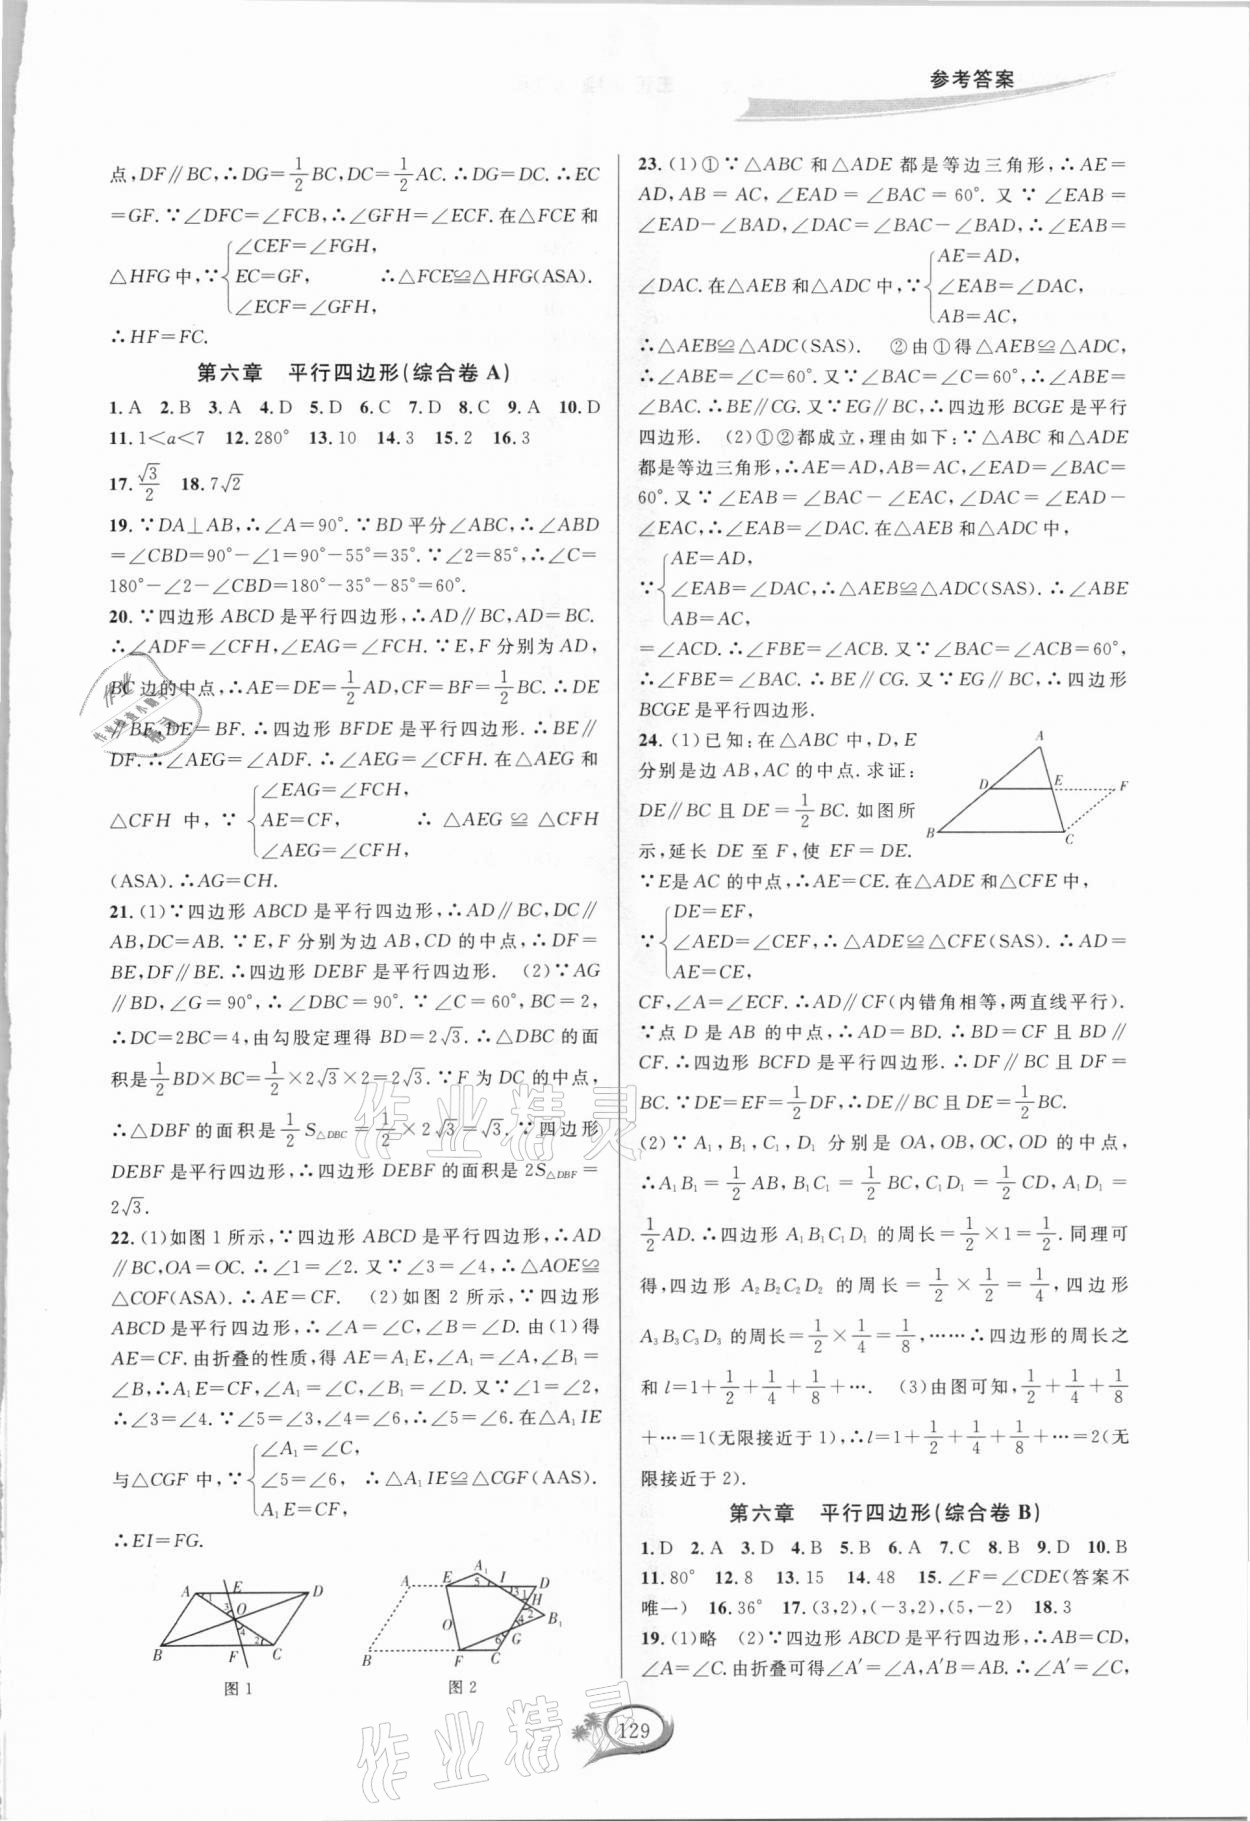 参考答案
点,DF∥BC,∴DG=1/2BC,DC=1/2AC.∴DG=DC.∴EC
=GF.∵∠DFC=∠FCB,∴∠GFH=∠ECF.在△FCE和
∠CEF=∠FGH,
△HFG中,∵{EC=GF, ∴△FCE≌△HFG(ASA).
∠ECF=∠GFH,
∴HF=FC.
第六章 平行四边形(综合卷A)
1.A 2.B 3.A 4.D 5.D 6.C 7.D 8.C 9.A 10.D
11.1<a<7 12.280° 13.10 14.3 15.2 16.3
17.√3/2 18.7√2
19.∵DA⊥AB,∴∠A=90°.∵BD平分∠ABC,∴∠ABD
=∠CBD=90°-∠1=90°-55°=35°.∵∠2=85°,∴∠C=
180°-∠2-∠CBD=180°-35°-85°=60°.
20.∵四边形ABCD是平行四边形,∴AD∥BC,AD=BC.
∴∠ADF=∠CFH,∠EAG=∠FCH.∵E,F分别为AD,
BC边的中点,∴AE=DE=1/2AD,CF=BF=1/2BC.∴DE
∥BF,DE=BF.∴四边形BFDE是平行四边形.∴BE∥
DF.∴∠AEG=∠ADF.∴∠AEG=∠CFH.在△AEG和
∠EAG=∠FCH,
△CFH中,∵{AE=CF, ∴△AEG≌△CFH
∠AEG=∠CFH,
(ASA).∴AG=CH.
21.(1)∵四边形ABCD是平行四边形,∴AD∥BC,DC∥
AB,DC=AB.∵E,F分别为边AB,CD的中点,∴DF=
BE,DF∥BE.∴四边形DEBF是平行四边形. (2)∵AG
∥BD,∠G=90°,∴∠DBC=90°.∵∠C=60°,BC=2,
∴DC=2BC=4,由勾股定理得BD=2√3.∴△DBC的面
积是1/2BD×BC=1/2×2√3×2=2√3.∵F为DC的中点,
∴△DBF的面积是1/2S△DBC=1/2×2√3=√3.∵四边形
DEBF是平行四边形,∴四边形DEBF的面积是2S△DBF=
2√3.
22.(1)如图1所示,∵四边形ABCD是平行四边形,∴AD
∥BC,OA=OC.∴∠1=∠2.又∵∠3=∠4,∴△AOE≌
△COF(ASA).∴AE=CF. (2)如图2所示,∵四边形
ABCD是平行四边形,∴∠A=∠C,∠B=∠D.由(1)得
AE=CF.由折叠的性质,得AE=A₁E,∠A₁=∠A,∠B₁=
∠B,∴A₁E=CF,∠A₁=∠C,∠B₁=∠D.又∵∠1=∠2,
∴∠3=∠4.∵∠5=∠3,∠4=∠6,∴∠5=∠6.在△A₁IE
∠A₁=∠C,
与△CGF中,∵{∠5=∠6, ∴△A₁IE≌△CGF(AAS).
A₁E=CF,
∴EI=FG.
A E D 1 3 O 4 2 B F C
图1
A E A₁ I D 5 3 1 H 2 B₁ O 4 G 6 B F C
图2
23.(1)①∵△ABC和△ADE都是等边三角形,∴AE=
AD,AB=AC,∠EAD=∠BAC=60°.又∵∠EAB=
∠EAD-∠BAD,∠DAC=∠BAC-∠BAD,∴∠EAB=
AE=AD,
∠DAC.在△AEB和△ADC中,∵{∠EAB=∠DAC,
AB=AC,
∴△AEB≌△ADC(SAS). ②由①得△AEB≌△ADC,
∴∠ABE=∠C=60°.又∵∠BAC=∠C=60°,∴∠ABE=
∠BAC.∴BE∥CG.又∵EG∥BC,∴四边形BCGE是平行
四边形. (2)①②都成立,理由如下:∵△ABC和△ADE
都是等边三角形,∴AE=AD,AB=AC,∠EAD=∠BAC=
60°.又∵∠EAB=∠BAC-∠EAC,∠DAC=∠EAD-
∠EAC,∴∠EAB=∠DAC.在△AEB和△ADC中,
AE=AD,
∵{∠EAB=∠DAC,∴△AEB≌△ADC(SAS).∴∠ABE
AB=AC,
=∠ACD.∴∠FBE=∠ACB.又∵∠BAC=∠ACB=60°,
∴∠FBE=∠BAC.∴BE∥CG.又∵EG∥BC,∴四边形
BCGE是平行四边形.
24.(1)已知:在△ABC中,D,E
分别是边AB,AC的中点.求证:
DE∥BC且DE=1/2BC.如图所
示,延长DE至F,使EF=DE.
A D E F B C
∵E是AC的中点,∴AE=CE.在△ADE和△CFE中,
DE=EF,
∵{∠AED=∠CEF,∴△ADE≌△CFE(SAS).∴AD=
AE=CE,
CF,∠A=∠ECF.∴AD∥CF(内错角相等,两直线平行).
∵点D是AB的中点,∴AD=BD.∴BD=CF且BD∥
CF.∴四边形BCFD是平行四边形.∴DF∥BC且DF=
BC.∵DE=EF=1/2DF,∴DE∥BC且DE=1/2BC.
(2)∵A₁,B₁,C₁,D₁分别是OA,OB,OC,OD的中点,
∴A₁B₁=1/2AB,B₁C₁=1/2BC,C₁D₁=1/2CD,A₁D₁=
1/2AD.∴四边形A₁B₁C₁D₁的周长=1/2×1=1/2.同理可
得,四边形A₂B₂C₂D₂的周长=1/2×1/2=1/4,四边形
A₃B₃C₃D₃的周长=1/2×1/4=1/8,……∴四边形的周长之
和l=1+1/2+1/4+1/8+…. (3)由图可知,1/2+1/4+1/8
+…=1(无限接近于1),∴l=1+1/2+1/4+1/8+…=2(无
限接近于2).
第六章 平行四边形(综合卷B)
1.D 2.A 3.D 4.B 5.B 6.A 7.C 8.B 9.D 10.B
11.80° 12.8 13.15 14.48 15.∠F=∠CDE(答案不
唯一) 16.36° 17.(3,2),(-3,2),(5,-2) 18.3
19.(1)略 (2)∵四边形ABCD是平行四边形,∴AB=CD,
∠A=∠C.由折叠可得∠A′=∠A,A′B=AB.∴∠A′=∠C,
129
作业精灵
作业精灵